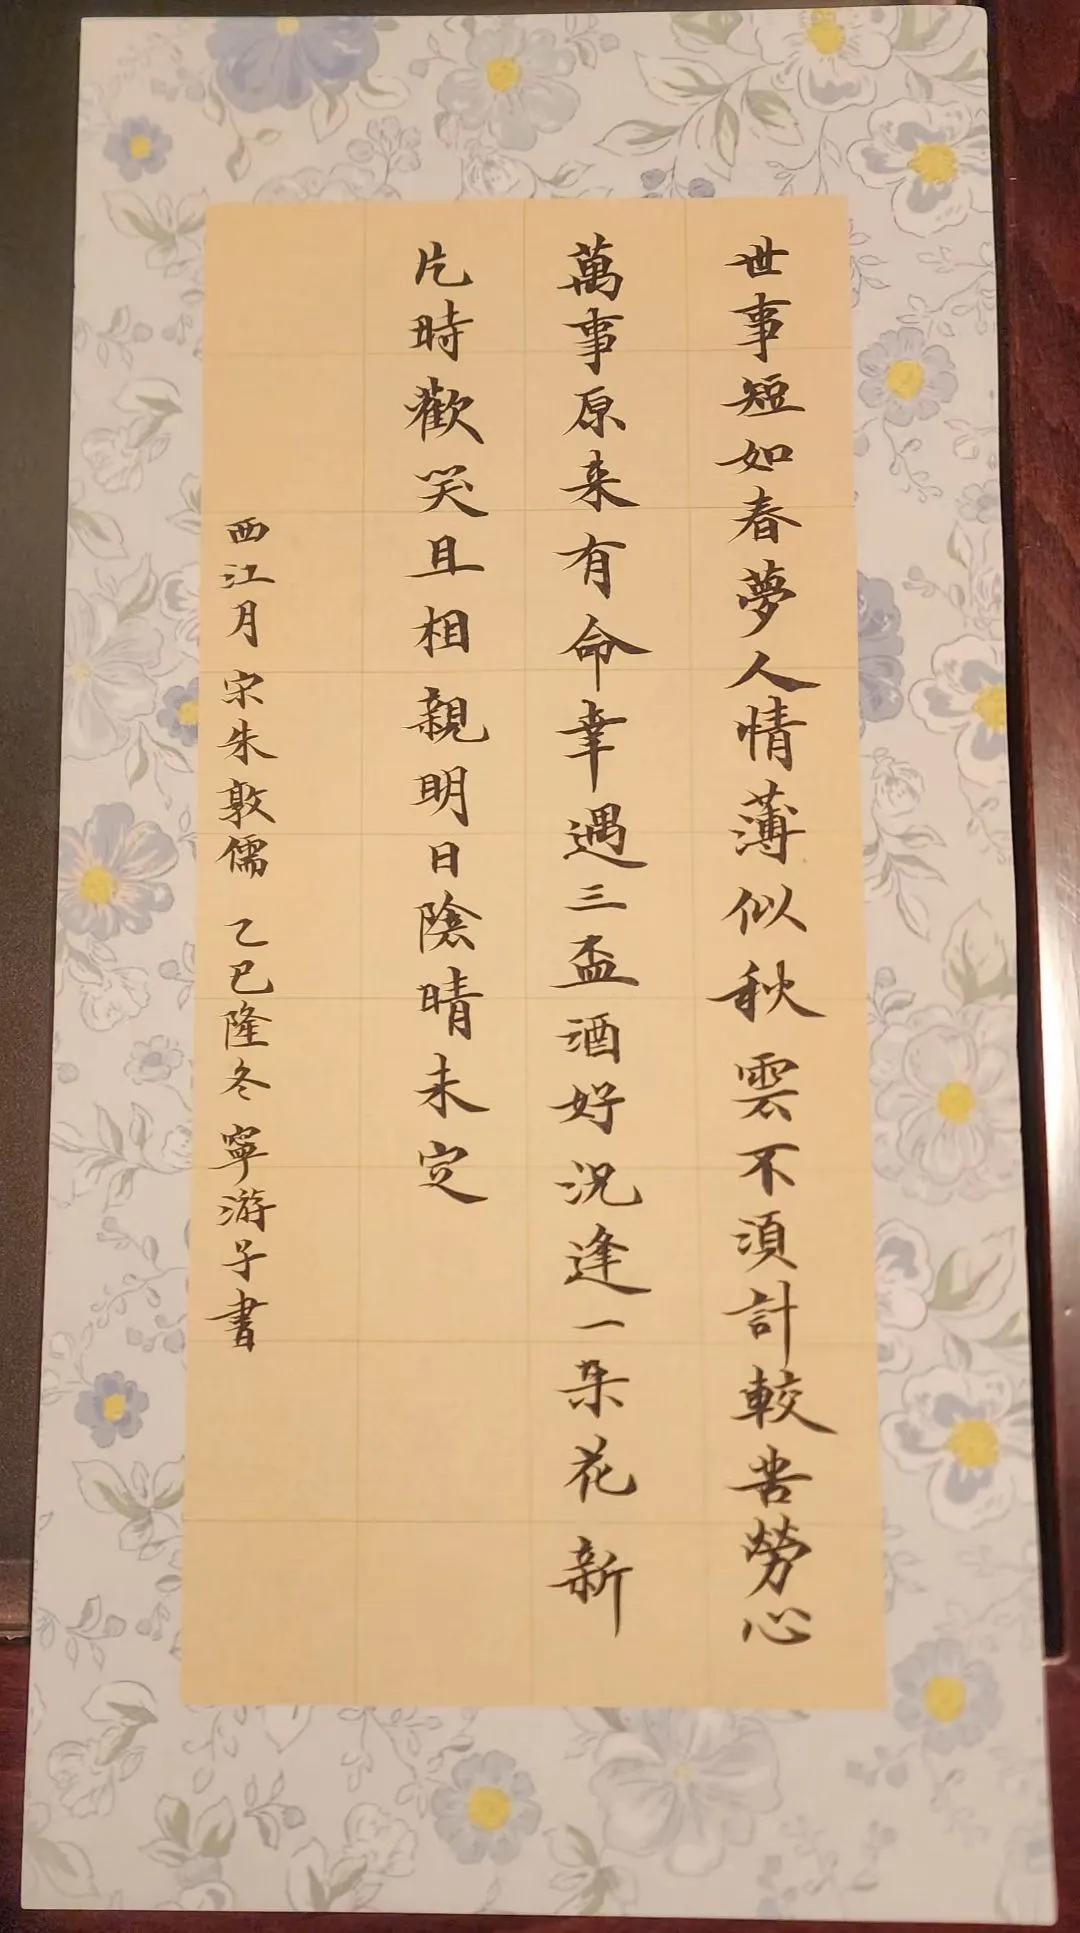 世事短如春夢人情薄似秋雲不須計較苦勞心
萬事原来有命幸遇三盃酒好況逢一朵花新
片時歡笑且相親明日陰晴未定
西江月 宋朱敦儒 乙巳隆冬寧游子書